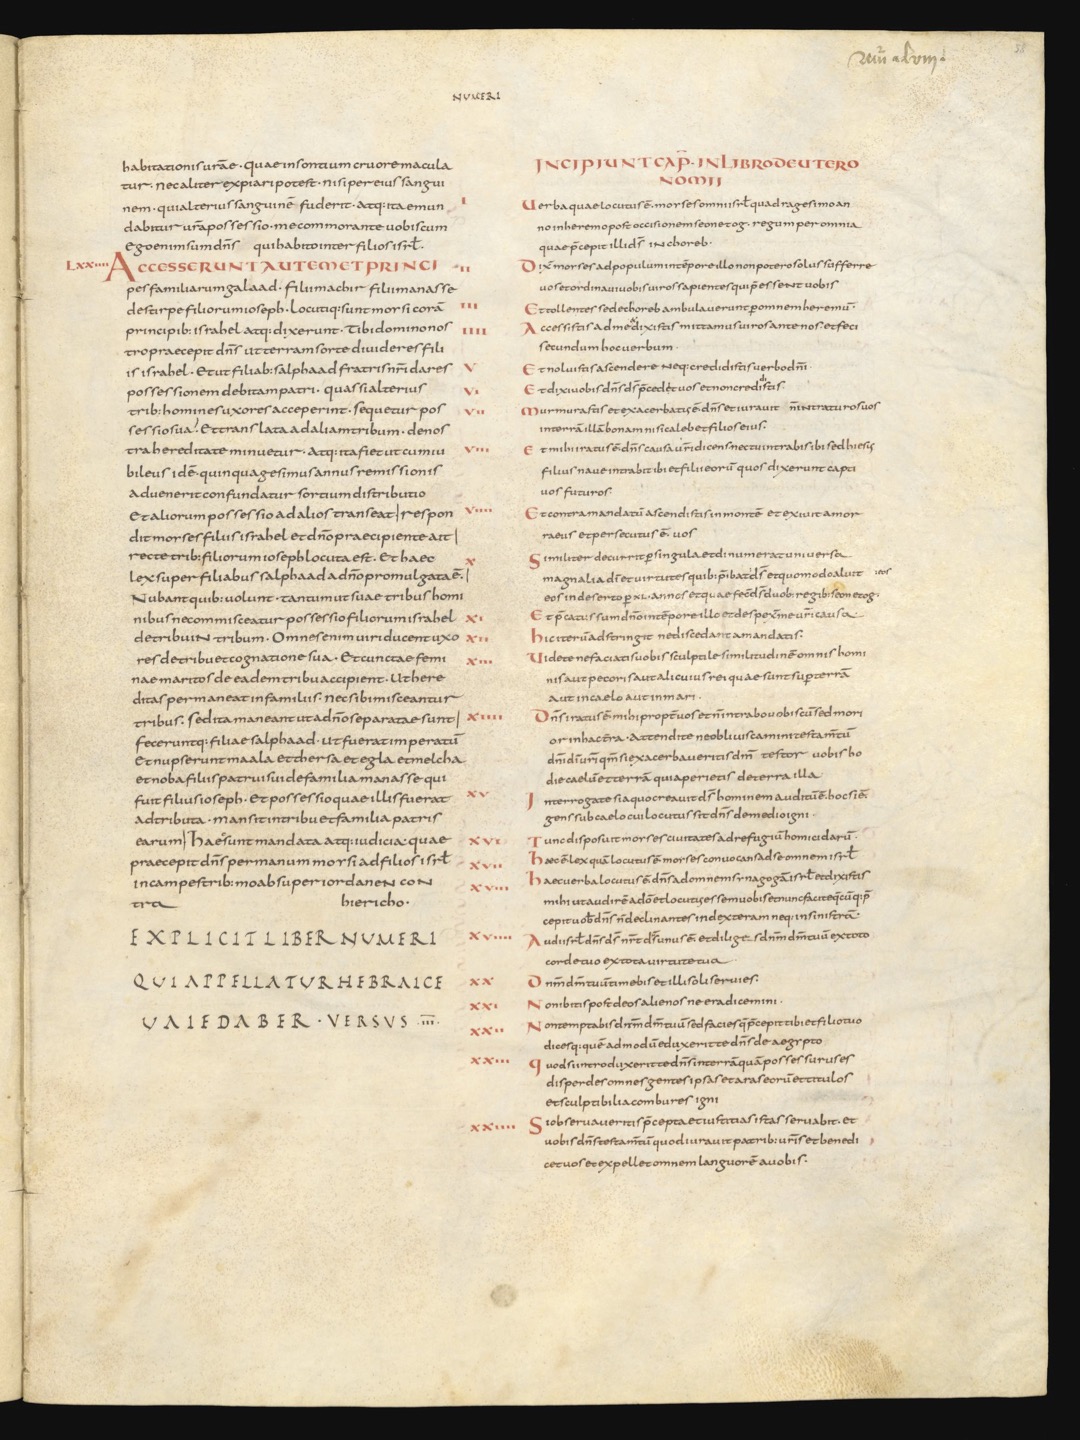 NUMERI
habitationis urae · quae insontium cruore macula
tur · nec aliter expiari potest · nisi per eius sangui
nem · qui alterius sanguinē fuderit · atq: ita emun
dabitur urā possessio · me commorante uobiscum
Ego enim sum dn̄s qui habito inter filios isrł.
LXX···· ACCESSERUNT AUTEM ET PRINCI
pes familiarum galaad · filii machir filii manasse
de stirpe filiorum ioseph · Locutiq: sunt morsi corā
principib: israhel atq: dixerunt · Tibi domino nos
tro praecepit dn̄s ut terram sorte diuideres fili
is israhel · Et ut filiab: salphaad fratris nr̄i dares
possessionem debitam patri · quas si alterius
trib: homines uxores acceperint · sequetur pos
sessio sua · Et translata ad aliam tribum · de nos
tra hereditate minuetur · atq: ita fiet ut cum iu
bileus idē · quinquagesimus annus remissionis
aduenerit confundatur sortium distributio
Et aliorum possessio ad alios transeat · respon
dit morses filiis israhel et dn̄o praecipiente ait
recte trib: filiorum ioseph locuta est · Et haec
lex super filiabus salphaad a dn̄o promulgata ē ·
Nubant quib: uolunt · tantum ut suae tribus homi
nibus ne commisceatur possessio filiorum israhel
de tribu in tribum · Omnes enim uiri ducent uxo
res de tribu et cognatione sua · Et cunctae femi
nae maritos de eadem tribu accipient · Ut here
ditas permaneat in familiis · nec sibi misceantur
tribus · sed ita maneant ut a dn̄o separatae sunt
feceruntq: filiae salphaad · ut fuerat imperatū
Et nupserunt maala et thersa et egla et melcha
et noba filiis patrui sui de familia manasse qui
fuit filius ioseph · Et possessio quae illis fuerat
adtributa · mansit in tribu et familia patris
earum Haec sunt mandata atq: iudicia · quae
praecepit dn̄s per manum morsi ad filios isrł
in campestrib: moab super iordanen con
tra hiericho ·
EXPLICIT LIBER NUMERI
QUI APPELLATUR HEBRAICE
UAIEDABER · VERSUS ·III·
INCIPIUNT CAP̄ · IN LIBRO DEUTERO
NOMII
I Uerba quae locutus ē · morses omni isrł quadragesimo an
no in heremo post occisionem seon et og · regum per omnia
quae p̄cepit illi ds̄ in choreb ·
II Dixi morses ad populum in tēpore illo non potero solus sufferre
uos et ordinaui uobis uiros sapientes qui p̄essent uobis
III Et tollentes se de choreb ambulauerunt per omnem heremū ·
IIII Accessistis ad me dixistis mittamus uiros ante nos · et feci
secundum hoc uerbum ·
V Et noluistis ascendere neq: credidistis uerbo dn̄i ·
VI Et dixi uobis dn̄s ds̄ p̄cedet uos et non credistis
VII Murmurastis et exacerbatus ē · dn̄s et iurauit n̄ intraturos uos
in terrā illā bonam nisi caleb et filios eius ·
VIII Et mihi iratus ē dn̄s causa uri dicens nec tu intrabis ibi sed hiesus
filius naue intrabit ibi et filii eorū quos dixerunt capti
uos futuros ·
VIIII Et contra mandatū ascendistis in montē et exiuit amor
raeus et persecutus ē · uos
X Similiter decurrit p singula et dinumerat uniuersa
magnalia dī et uirtutes quib: p̄bat ds̄ et quomodo aluit
eos in deserto p xl · annos et quae fecit ds̄ duob: regib: seon et og ·
XI Et p̄catus sum dn̄o in tēpore illo et despexit me uri causa
XII Hic iterū adstringit ne discedant a mandatis ·
XIII Uidete ne faciatis uobis sculptile similitudinē omnis homi
nis aut pecoris aut alicuius rei quae sunt sup terrā
aut in caelo aut in mari ·
XIIII Dn̄s iratus ē · mihi propt uos et n̄ intrabo uobiscū sed mori
or in hac t̄ra · Attendite ne obliuiscamini testam̄tū
dn̄i dī uri qm̄ si exacerbaueritis dn̄m testor uobis ho
die caelū et terrā quia perietis de terra illa
XV Interrogate si a quo creauit ds̄ hominem auditū ē · hoc si ē
gens sub caelo cui locutus sit dn̄s de medio igni ·
XVI Tunc disposuit morses ciuitates ad refugiū homicidarū ·
XVII Haec ē lex quā locutus ē · morses conuocans ad se omnem isrł
XVIII Haec uerba locutus ē · dn̄s ad omnem synagogā isrł et dixistis
cepit uob dn̄s n̄ declinantes in dexteram neq: in sinistrā ·
XVIIII Audi isrł dn̄s ds̄ nr̄ ds̄ unus ē · et diliges dn̄m dm̄ tuū ex toto
corde tuo ex tota uirtute tua
XX Dn̄m dm̄ tuū timebis et illi soli seruies ·
XXI Non ibitis post deos alienos ne eradicemini ·
XXII Non temptabis dn̄m dm̄ tuū sed facies q p̄cepit tibi et filio tuo
dicesq: quē admodū eduxerit te dn̄s de aegypto
XXIII Quod si introduxerit te dn̄s in terrā quā possessurus es
disperdes omnes gentes ipsas et aras eorū et titulos
et sculptibilia combures igni
XXIIII Si obseruaueritis p̄cepta et iustitias istas seruabit · et
uobis dn̄s testam̄tū quod iurauit patrib: ur̄is et benedi
cet uos et expellet omnem languorē a uobis ·